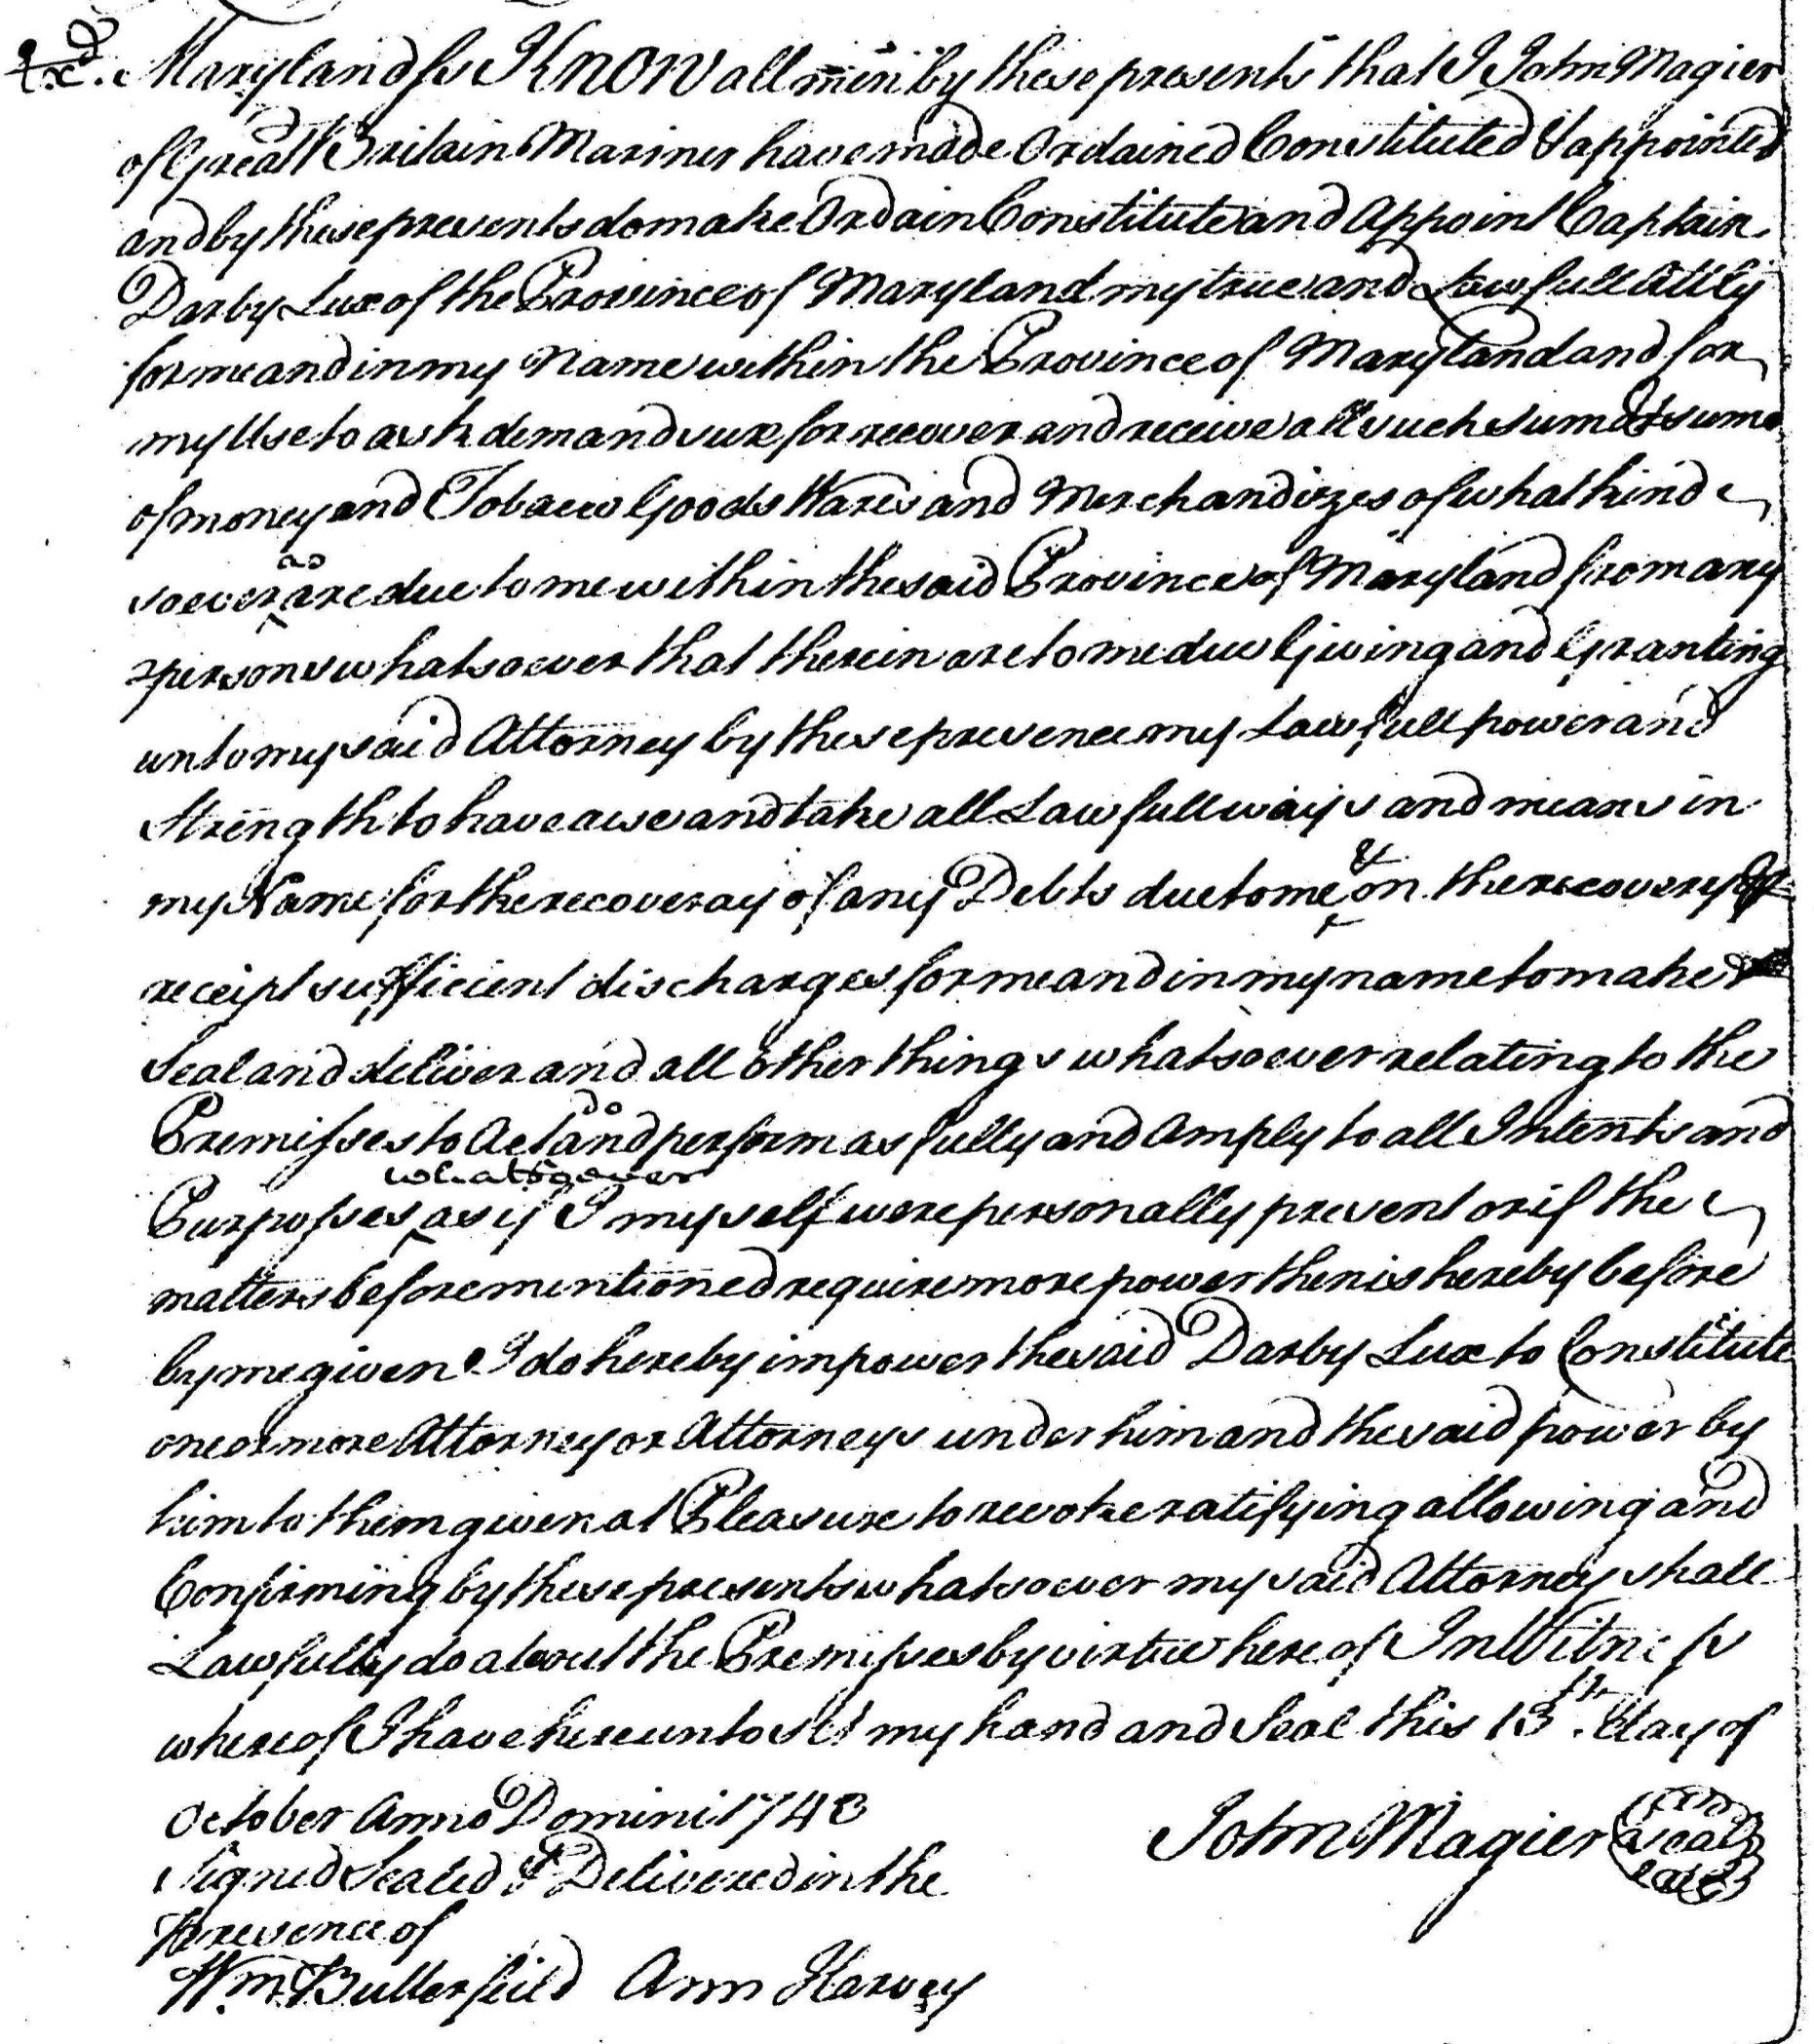 Exd. Maryland ss Know all men by these presents that I John Magier
of Great Britain Mariner have made Ordained Constituted & appointed
and by these presents do make Ordain Constitute and Appoint Captain
Darby Lux of the Province of Maryland my true and Lawfull Atty
for me and in my Name within the Province of Maryland and for
my Use to ask demand sue for recover and receive all such sum or sums
of money and Tobacco Goods Wares and Merchandizes of what kind
soever as are due to me within the said Province of Maryland from any
persons whatsoever that therein are to me due Giving and Granting
unto my said Attorney by these presence my Lawfull power and
Strength to have use and take all Lawfull ways and means in
my Name for the recoveray of any Debts due to me & on the recovery &
receipt sufficient discharges for me and in my name to make
Seal and deliver and all other things whatsoever relating to the
Premisses to Act do and perform as fully and Amply to all Intents and
Purposses whatsoever as if I myself were personally present or if the
matters before mentioned require more power then is hereby before
by me given I do hereby impower the said Darby Lux to Constitute
one or more Attorney or Attorneys under him and the said power by
him to them given at Pleasure to revoke ratifying allowing and
Confirming by these presents whatsoever my said Attorney shall
Lawfully do about the Premisses by virtue hereof In Witness
whereof I have hereunto set my hand and Seal this 13th. day of
October Anno Domini 1743
Signed Sealed & Delivered in the
Presence of
John Magier and a seal
Wm. Butterfeild Ann Harvey